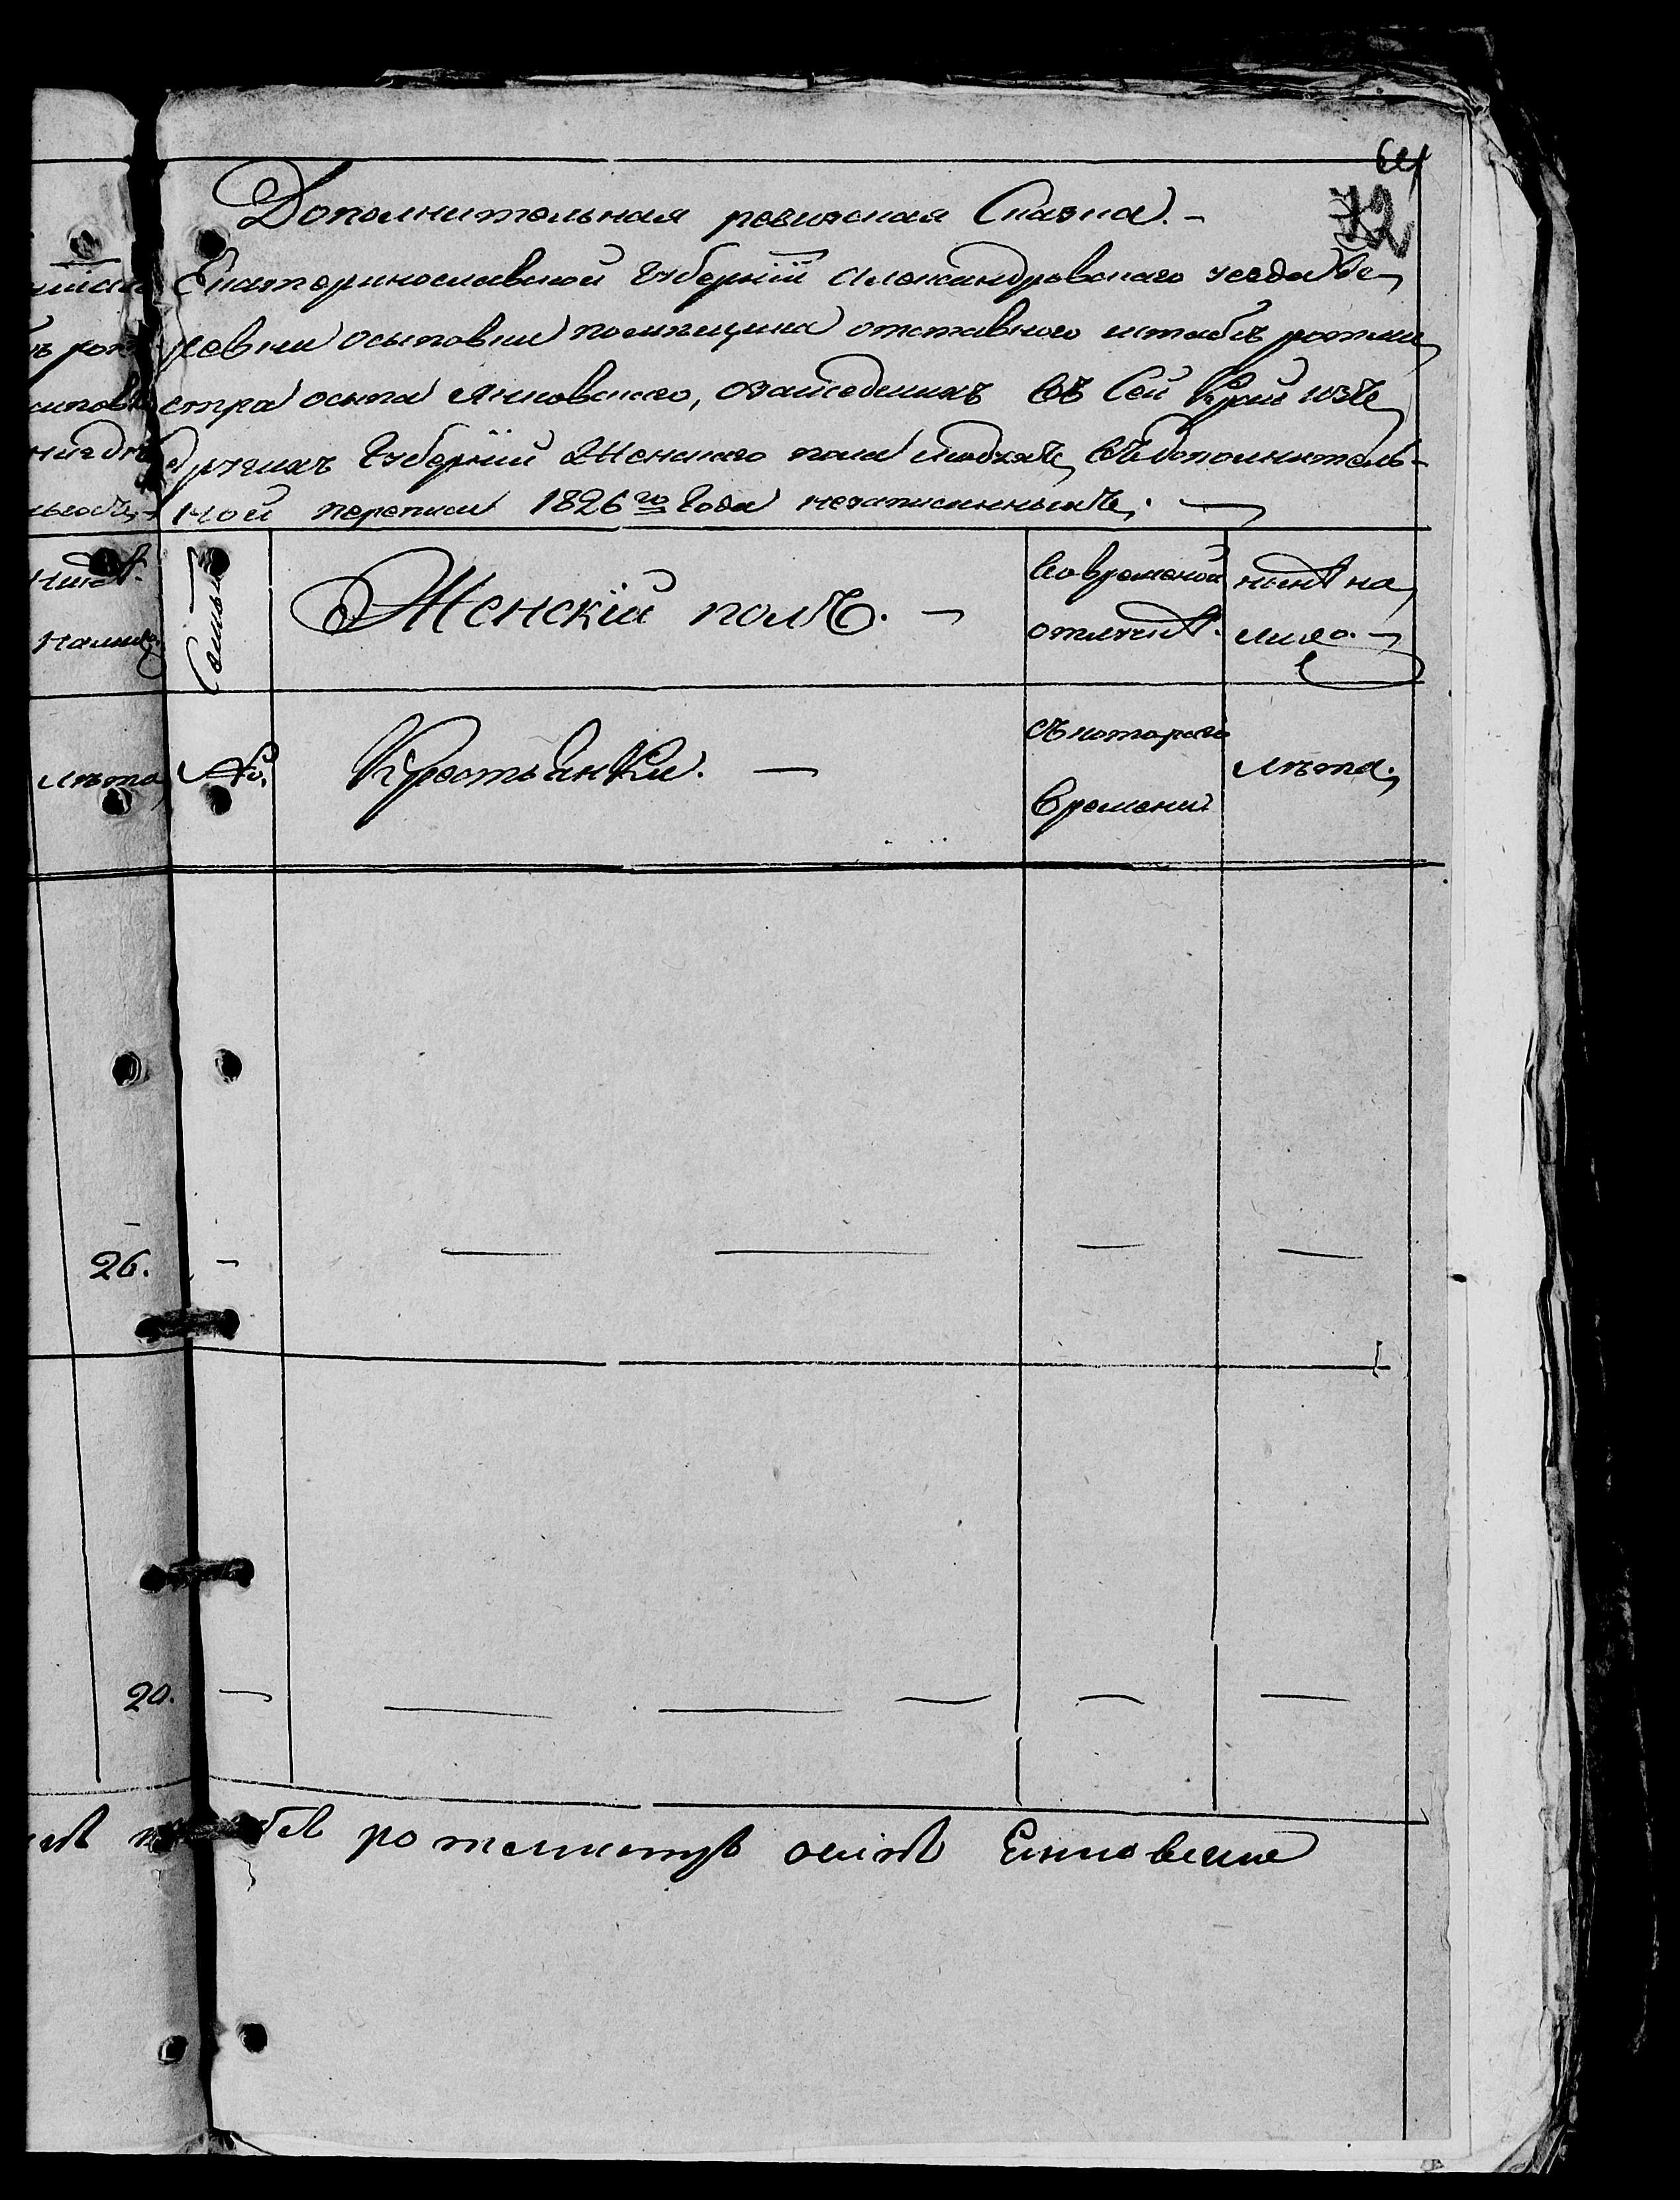 64
72
Дополнительная ревизская Сказка. —
Екатеринославской Губернии Александровского уезда де-
ревни Осиповки помещика отставного штабъ ротми-
стра осипа Янковского, озашедшихъ въ Сей Край изъ
другихъ Губерний Женского пола людяхъ, въ дополнитель-
ной переписи 1826го Года незаписанныхъ. —
Семьи
Женскій полъ. —
Во временной отлучке.
ныне на лицо. —
Лета
№.
Крестьянки. —
съ котораго времени
Лета.
26. — — — — —
20. — — — — — —
ротмистръ осипъ Енковский